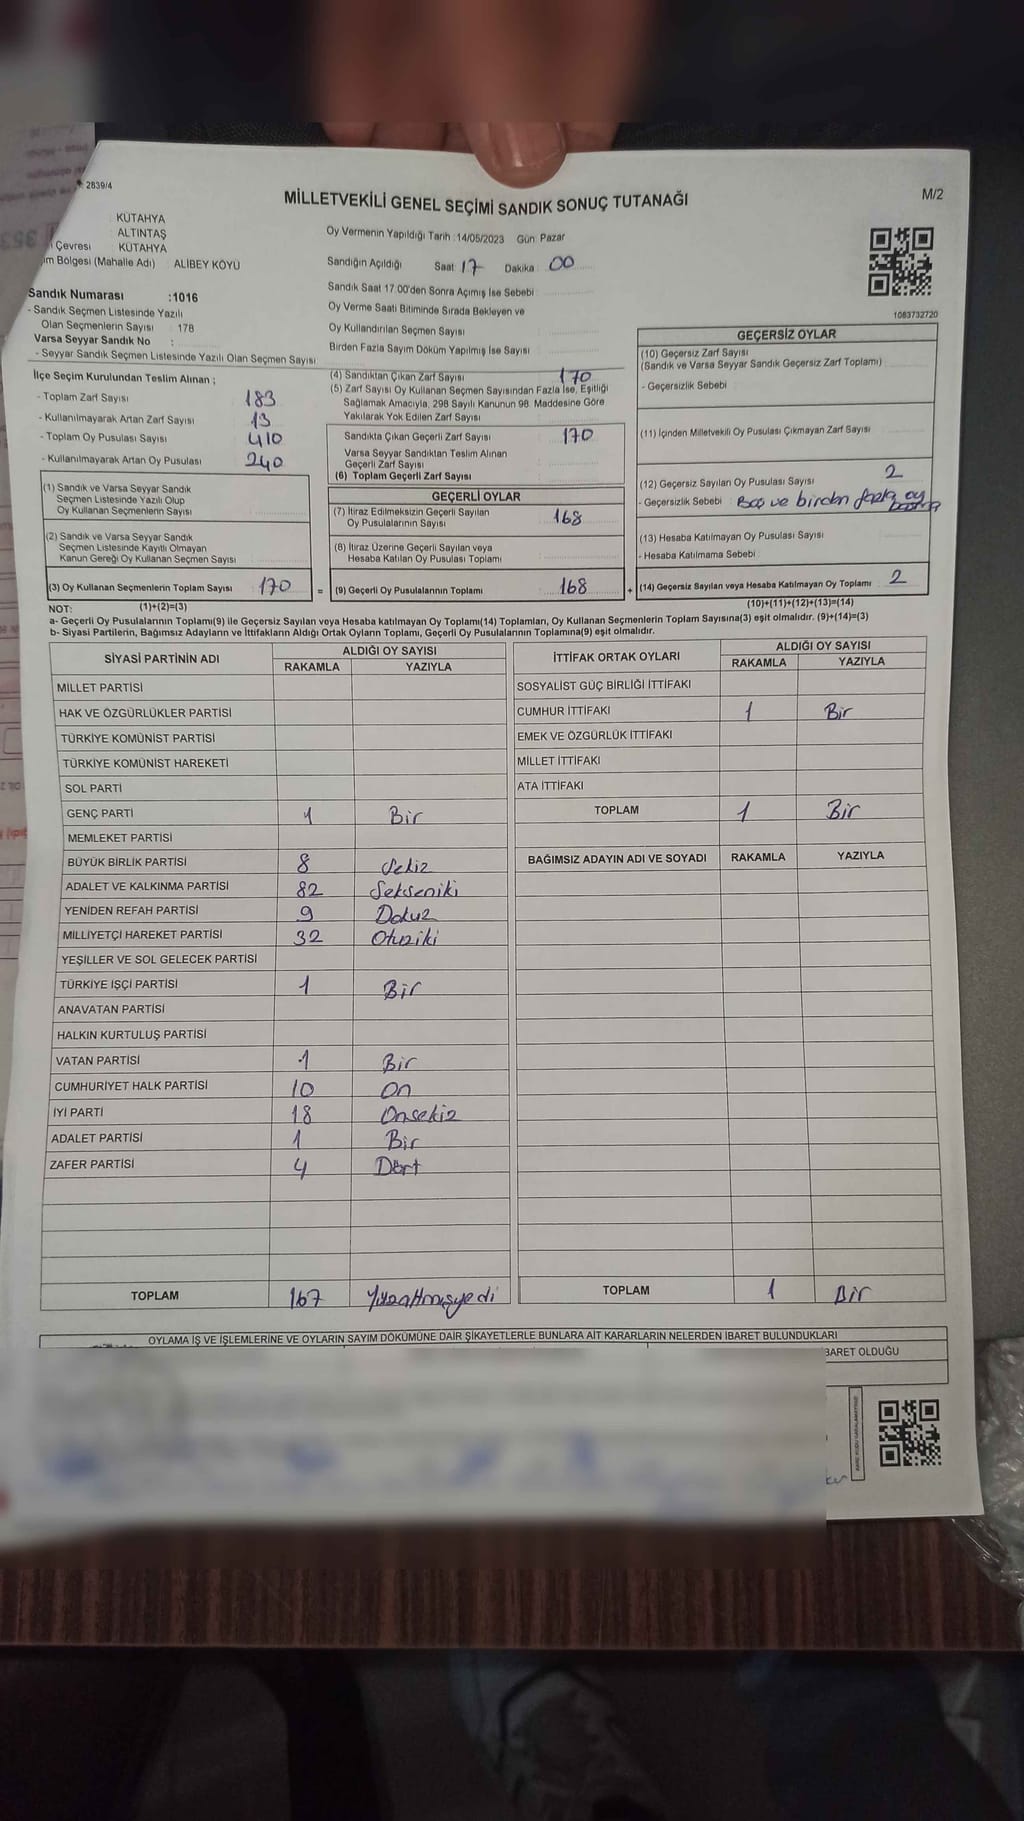 2839/4
MİLLETVEKİLİ GENEL SEÇİMİ SANDIK SONUÇ TUTANAĞI
M/2
KÜTAHYA
ALTINTAŞ
Çevresi KÜTAHYA
Bölgesi (Mahalle Adı) ALİBEY KÖYÜ
Sandık Numarası :1016
- Sandık Seçmen Listesinde Yazılı
Olan Seçmenlerin Sayısı : 178
Varsa Seyyar Sandık No :
- Seyyar Sandık Seçmen Listesinde Yazılı Olan Seçmen Sayısı
Oy Vermenin Yapıldığı Tarih :14/05/2023 Gün: Pazar
Sandığın Açıldığı Saat: 17 Dakika: 00
Sandık Saat 17:00'den Sonra Açımış İse Sebebi :
Oy Verme Saati Bitiminde Sırada Bekleyen ve
Oy Kullandırılan Seçmen Sayısı :
Birden Fazla Sayım Döküm Yapılmış İse Sayısı :
1083732720
İlçe Seçim Kurulundan Teslim Alınan ;
- Toplam Zarf Sayısı 183
- Kullanılmayarak Artan Zarf Sayısı 13
- Toplam Oy Pusulası Sayısı 410
- Kullanılmayarak Artan Oy Pusulası 240
(1) Sandık ve Varsa Seyyar Sandık
Seçmen Listesinde Yazılı Olup
Oy Kullanan Seçmenlerin Sayısı
(2) Sandık ve Varsa Seyyar Sandık
Seçmen Listesinde Kayıtlı Olmayan
Kanun Gereği Oy Kullanan Seçmen Sayısı
(3) Oy Kullanan Seçmenlerin Toplam Sayısı 170 =
(4) Sandıktan Çıkan Zarf Sayısı 170
(5) Zarf Sayısı Oy Kullanan Seçmen Sayısından Fazla İse, Eşitliği
Sağlamak Amacıyla, 298 Sayılı Kanunun 98. Maddesine Göre
Yakılarak Yok Edilen Zarf Sayısı
Sandıkta Çıkan Geçerli Zarf Sayısı 170
Varsa Seyyar Sandıktan Teslim Alınan
Geçerli Zarf Sayısı
(6) Toplam Geçerli Zarf Sayısı
GEÇERLİ OYLAR
(7) İtiraz Edilmeksizin Geçerli Sayılan
Oy Pusulalarının Sayısı 168
(8) İtiraz Üzerine Geçerli Sayılan veya
Hesaba Katılan Oy Pusulası Toplamı
(9) Geçerli Oy Pusulalarının Toplamı 168 +
GEÇERSİZ OYLAR
(10) Geçersiz Zarf Sayısı
(Sandık ve Varsa Seyyar Sandık Geçersiz Zarf Toplamı)
- Geçersizlik Sebebi
(11) İçinden Milletvekili Oy Pusulası Çıkmayan Zarf Sayısı
(12) Geçersiz Sayılan Oy Pusulası Sayısı 2
- Geçersizlik Sebebi Boş ve birden fazla oy
basma
(13) Hesaba Katılmayan Oy Pusulası Sayısı
- Hesaba Katılmama Sebebi
(14) Geçersiz Sayılan veya Hesaba Katılmayan Oy Toplamı 2
NOT: (1)+(2)=(3) (10)+(11)+(12)+(13)=(14)
a- Geçerli Oy Pusulalarının Toplamı(9) ile Geçersiz Sayılan veya Hesaba katılmayan Oy Toplamı(14) Toplamları, Oy Kullanan Seçmenlerin Toplam Sayısına(3) eşit olmalıdır. (9)+(14)=(3)
b- Siyasi Partilerin, Bağımsız Adayların ve İttifakların Aldığı Ortak Oyların Toplamı, Geçerli Oy Pusulalarının Toplamına(9) eşit olmalıdır.
SİYASİ PARTİNİN ADI ALDIĞI OY SAYISI
RAKAMLA YAZIYLA
MİLLET PARTİSİ
HAK VE ÖZGÜRLÜKLER PARTİSİ
TÜRKİYE KOMÜNİST PARTİSİ
TÜRKİYE KOMÜNİST HAREKETİ
SOL PARTİ
GENÇ PARTİ 1 Bir
MEMLEKET PARTİSİ
BÜYÜK BİRLİK PARTİSİ 8 Sekiz
ADALET VE KALKINMA PARTİSİ 82 Sekseniki
YENİDEN REFAH PARTİSİ 9 Dokuz
MİLLİYETÇİ HAREKET PARTİSİ 32 Otuziki
YEŞİLLER VE SOL GELECEK PARTİSİ
TÜRKİYE İŞÇİ PARTİSİ 1 Bir
ANAVATAN PARTİSİ
HALKIN KURTULUŞ PARTİSİ
VATAN PARTİSİ 1 Bir
CUMHURİYET HALK PARTİSİ 10 On
İYİ PARTİ 18 Onsekiz
ADALET PARTİSİ 1 Bir
ZAFER PARTİSİ 4 Dört
TOPLAM 167 Yüzaltmışyedi
İTTİFAK ORTAK OYLARI ALDIĞI OY SAYISI
RAKAMLA YAZIYLA
SOSYALİST GÜÇ BİRLİĞİ İTTİFAKI
CUMHUR İTTİFAKI 1 Bir
EMEK VE ÖZGÜRLÜK İTTİFAKI
MİLLET İTTİFAKI
ATA İTTİFAKI
TOPLAM 1 Bir
BAĞIMSIZ ADAYIN ADI VE SOYADI RAKAMLA YAZIYLA
TOPLAM 1 Bir
OYLAMA İŞ VE İŞLEMLERİNE VE OYLARIN SAYIM DÖKÜMÜNE DAİR ŞİKAYETLERLE BUNLARA AİT KARARLARIN NELERDEN İBARET BULUNDUKLARI
BARET OLDUĞU